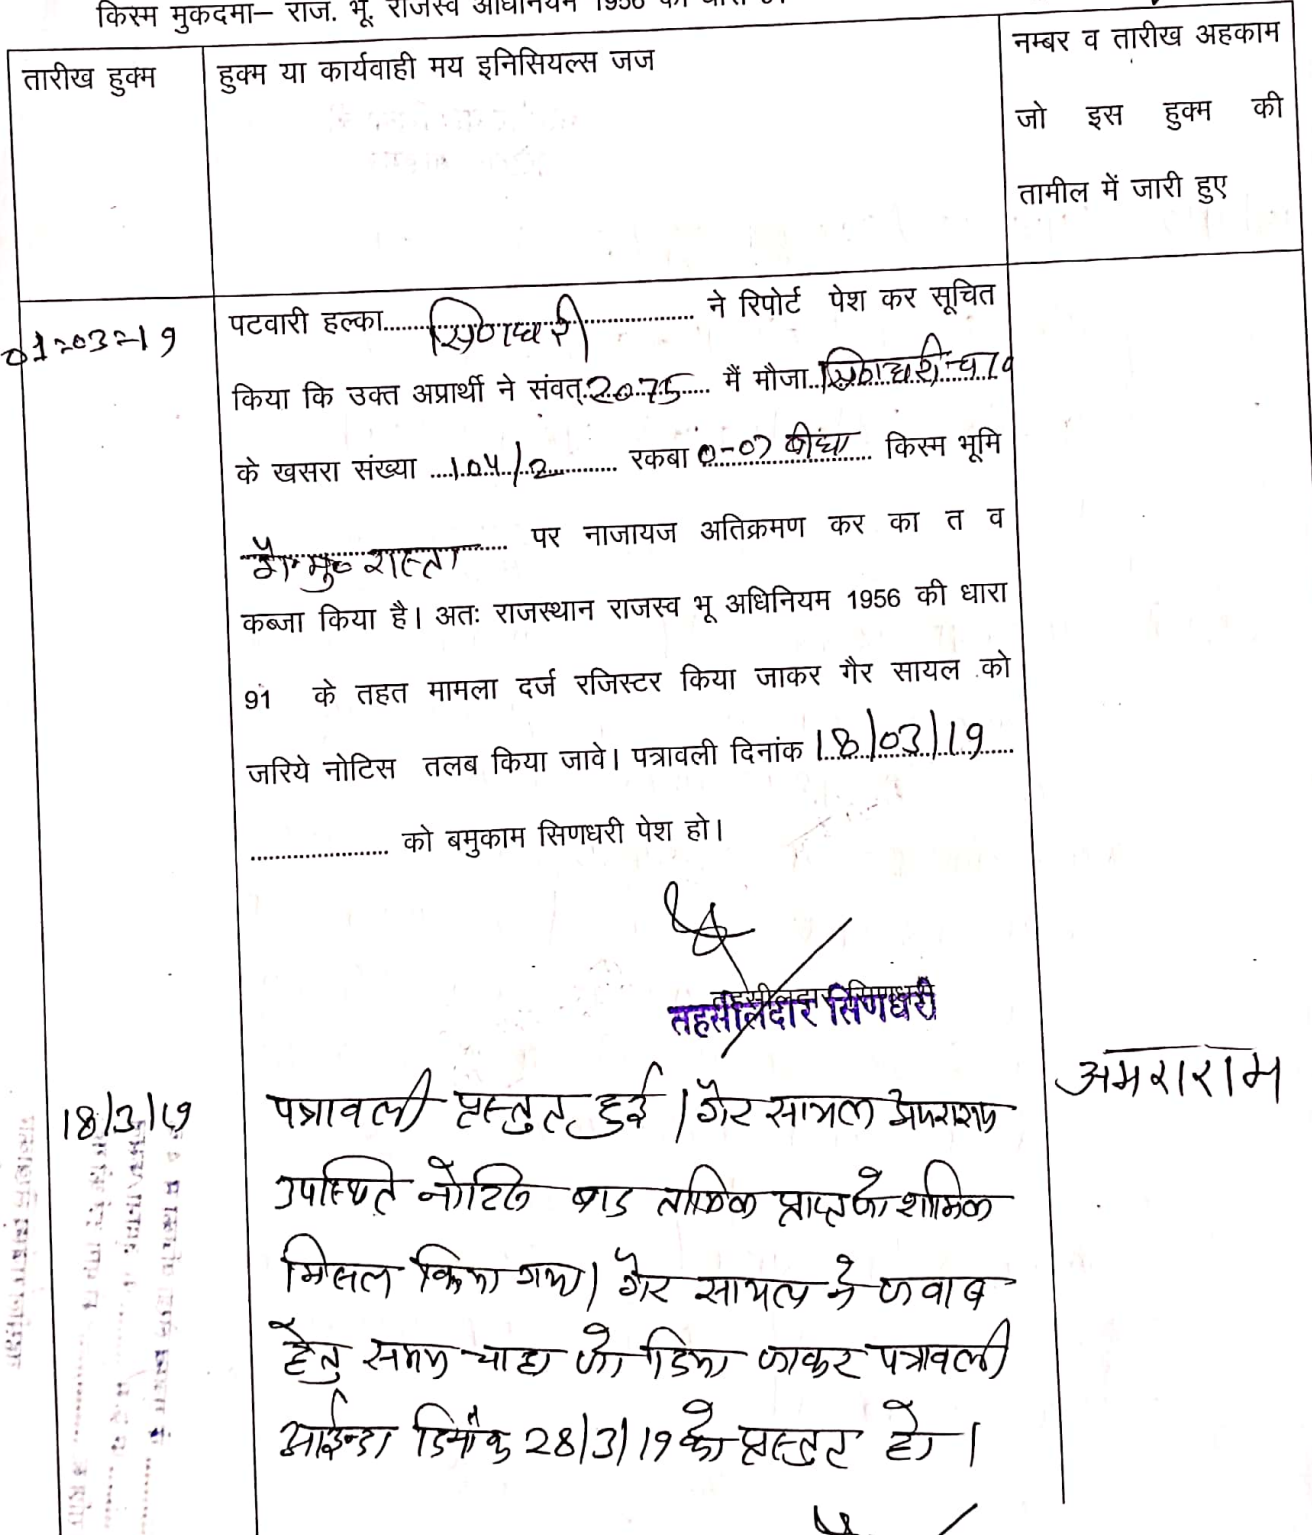 किस्म मुकदमा– राज. भू. राजस्व अधिनियम 1956 की धारा 91
तारीख हुक्म
हुक्म या कार्यवाही मय इनिसियल्स जज
नम्बर व तारीख अहकाम
जो इस हुक्म की
तामील में जारी हुए
01-03-19
पटवारी हल्का सिणधरी ने रिपोर्ट पेश कर सूचित
किया कि उक्त अप्रार्थी ने संवत् 2075 मैं मौजा सिणधरी
के खसरा संख्या 104/2 रकबा 0-07 बीघा किस्म भूमि
गै॰मु॰ रास्ता पर नाजायज अतिक्रमण कर का त व
कब्जा किया है। अतः राजस्थान राजस्व भू अधिनियम 1956 की धारा
91 के तहत मामला दर्ज रजिस्टर किया जाकर गैर सायल को
जरिये नोटिस तलब किया जावे। पत्रावली दिनांक 18/03/19
को बमुकाम सिणधरी पेश हो।
तहसीलदार सिणधरी
तहसीलदार सिणधरी
18/3/19
पत्रावली प्रस्तुत हुई। गैर सायल अमराराम
उपस्थित नोटिस बाद तामिल प्राप्त जो शामिल
मिसल किया गया। गैर सायल ने जवाब
हेतु समय चाहा जो दिया जाकर पत्रावली
आईन्दा दिनांक 28/3/19 को प्रस्तुत हो।
अमराराम